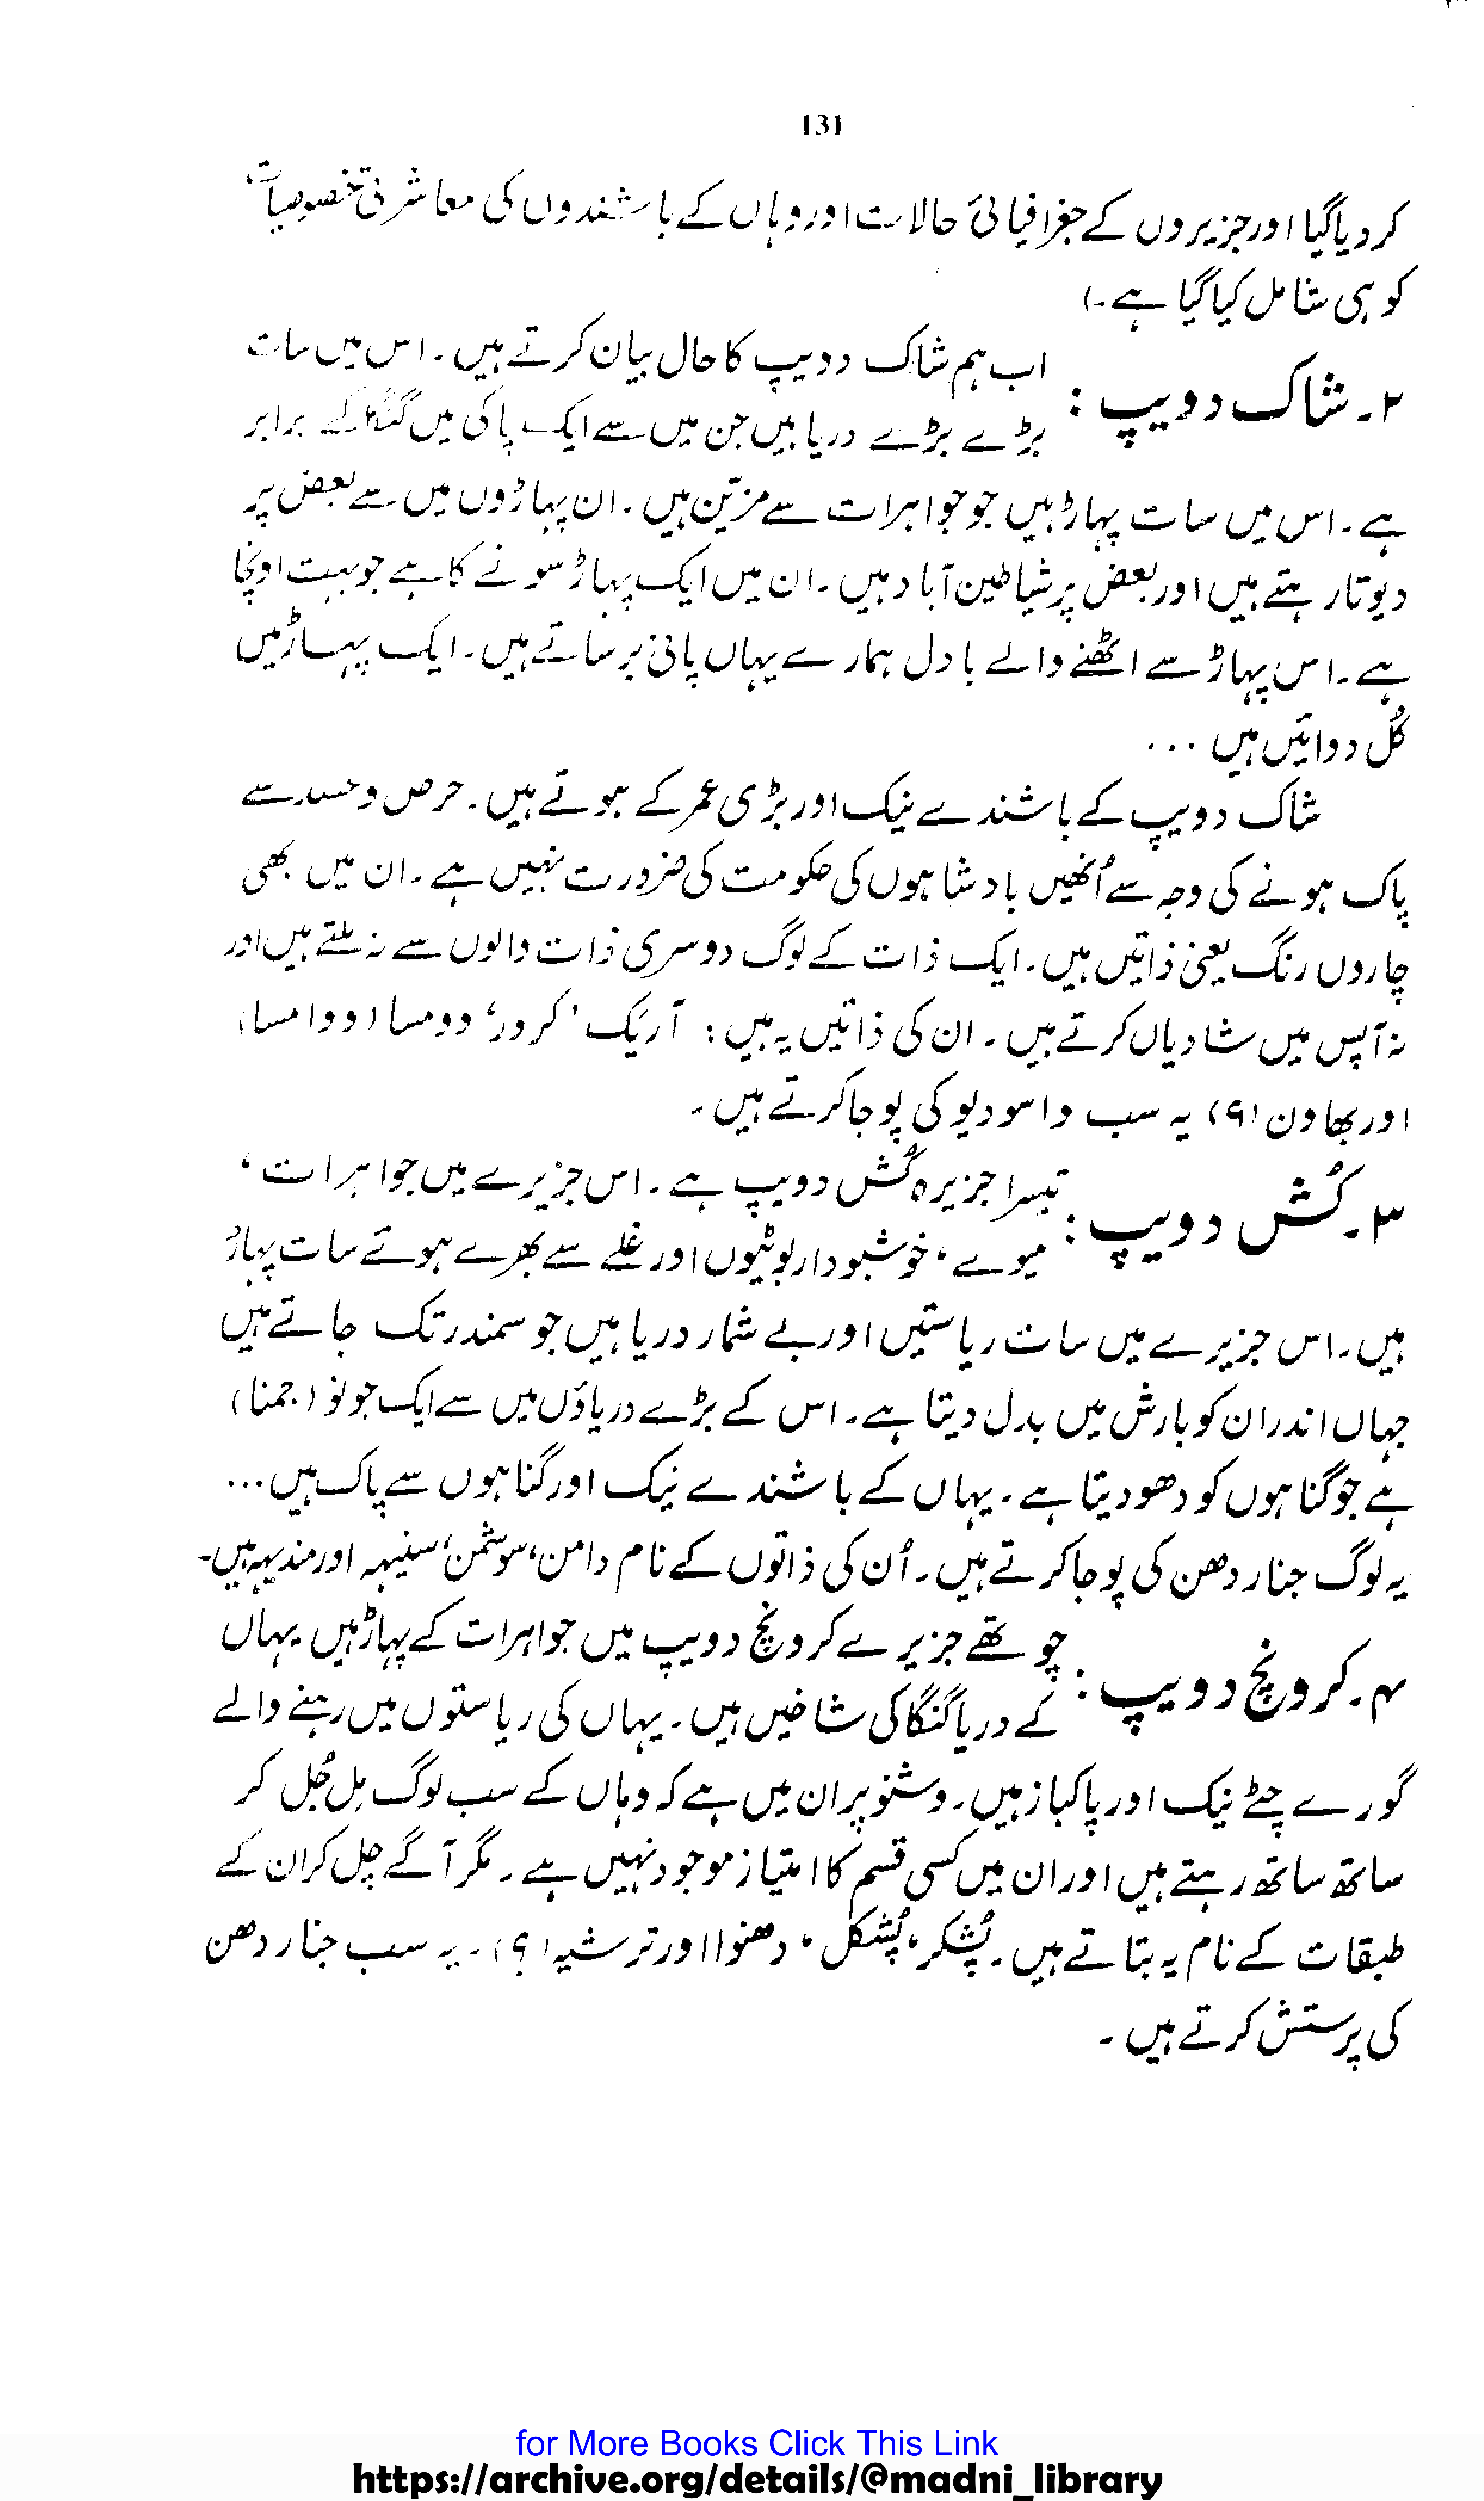 131
کر دیا گیا اور جزیروں کے جغرافیائی حالات اور وہاں کے باشندوں کی معاشرتی خصوصیات
کو ہی شامل کیا گیا ہے۔)
۲۔ شاک دویپ : اب ہم شاک دویپ کا حال بیان کرتے ہیں۔ اس میں سات
بڑے بڑے دریا ہیں جن میں سے ایک پاکی میں گنگا کے برابر
ہے۔ اس میں سات پہاڑ ہیں جو جواہرات سے مزیّن ہیں۔ ان پہاڑوں میں سے بعض پر
دیوتا رہتے ہیں اور بعض پر شیاطین آباد ہیں۔ ان میں ایک پہاڑ سونے کا ہے جو بہت اونچا
ہے۔ اس پہاڑ سے اٹھنے والے بادل ہمارے یہاں پانی برساتے ہیں۔ ایک پہاڑ میں
کُل دوائیں ہیں ...
شاک دویپ کے باشندے نیک اور بڑی عمر کے ہوتے ہیں۔ حرص وحسد سے
پاک ہونے کی وجہ سے اُنھیں بادشاہوں کی حکومت کی ضرورت نہیں ہے۔ ان میں بھی
چاروں رنگ یعنی ذاتیں ہیں۔ ایک ذات کے لوگ دوسری ذات والوں سے نہ ملتے ہیں اور
نہ آپس میں شادیاں کرتے ہیں۔ ان کی ذاتیں یہ ہیں : آریک، کرور، وومسا (ووامسا)
اور بھاون (؟) یہ سب واسودیو کی پوجا کرتے ہیں۔
۳۔ کُش دویپ : تیسرا جزیرہ کُش دویپ ہے۔ اس جزیرے میں جواہرات،
میوے، خوشبودار بوٹیوں اور غلّے سے بھرے ہوئے سات پہاڑ
ہیں۔ اس جزیرے میں سات ریاستیں اور بے شمار دریا ہیں جو سمندر تک جاتے ہیں
جہاں اندر ان کو بارش میں بدل دیتا ہے۔ اس کے بڑے دریاؤں میں سے ایک جونو (جمنا)
ہے جو گناہوں کو دھو دیتا ہے۔ یہاں کے باشندے نیک اور گناہوں سے پاک ہیں ...
یہ لوگ جناردھن کی پوجا کرتے ہیں۔ اُن کی ذاتوں کے نام دامن، سوشمن، سنیہہ اور مندیہہ ہیں۔
۴۔ کرونچ دویپ : چوتھے جزیرے کرونچ دویپ میں جواہرات کے پہاڑ ہیں یہاں
کے دریا گنگا کی شاخیں ہیں۔ یہاں کی ریاستوں میں رہنے والے
گورے چٹّے نیک اور پاکباز ہیں۔ وشنو پران میں ہے کہ وہاں کے سب لوگ مِل جُل کر
ساتھ ساتھ رہتے ہیں اور ان میں کسی قسم کا امتیاز موجود نہیں ہے۔ مگر آگے چل کر ان کے
طبقات کے نام یہ بتاتے ہیں۔ پُشکر، پُشکل، دھنوا اور ترشیہ (؟)۔ یہ سب جناردھن
کی پرستش کرتے ہیں۔
for More Books Click This Link
https://archive.org/details/@madni_library